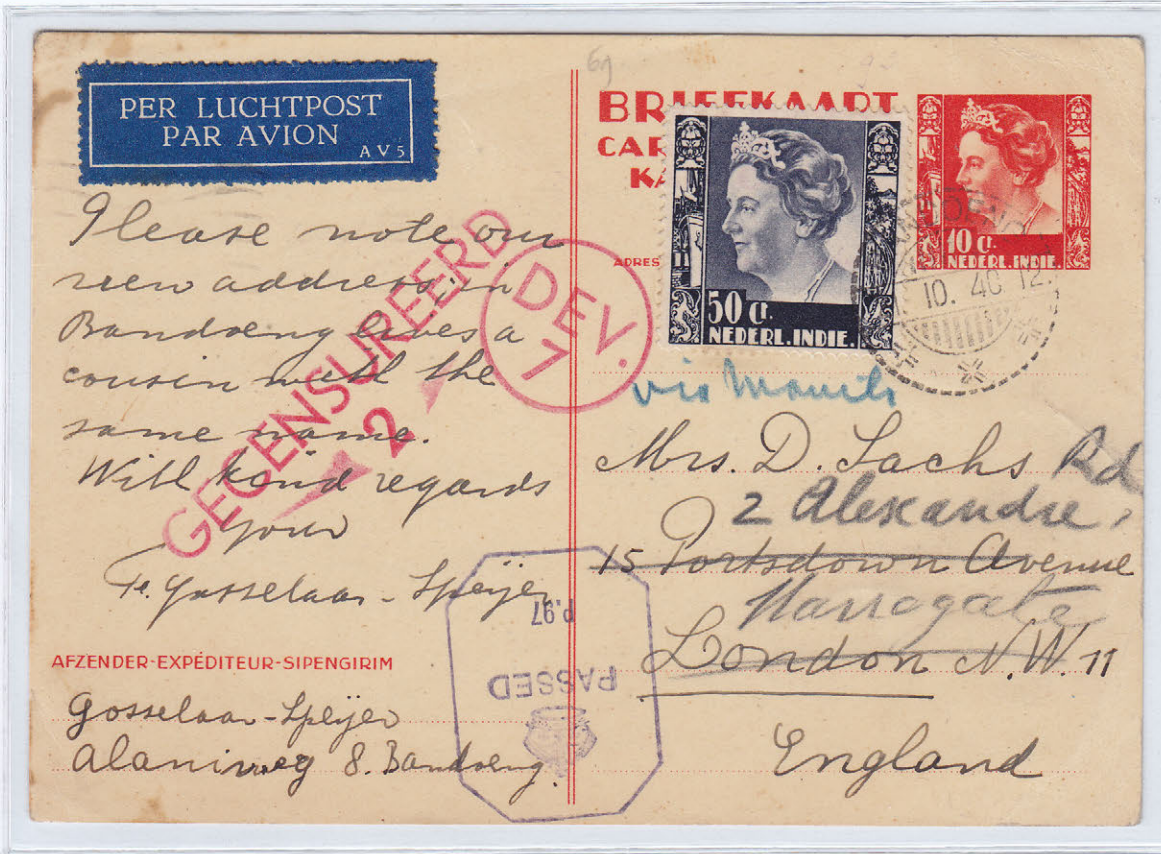 PER LUCHTPOST
PAR AVION
AV5
Please note our
new address, in
Bandoeng lives a
cousin with the
same name.
With kind regards
your
F. Gosselaar-Speijer
GECENSUREERD
2
DEV.
7
AFZENDER-EXPÉDITEUR-SIPENGIRIM
Gosselaar-Speijer
8. Bandoeng.
PASSED
P.97
BRIEFKAART
CAR
KA
ADRES
50 Ct.
NEDERL. INDIE.
10 Ct.
NEDERL. INDIE.
10. 40 12.
via Manila
Mrs. D. Sachs
2 Alexandre Rd
15 Portsdown Avenue
Harrogate
London N.W. 11
England